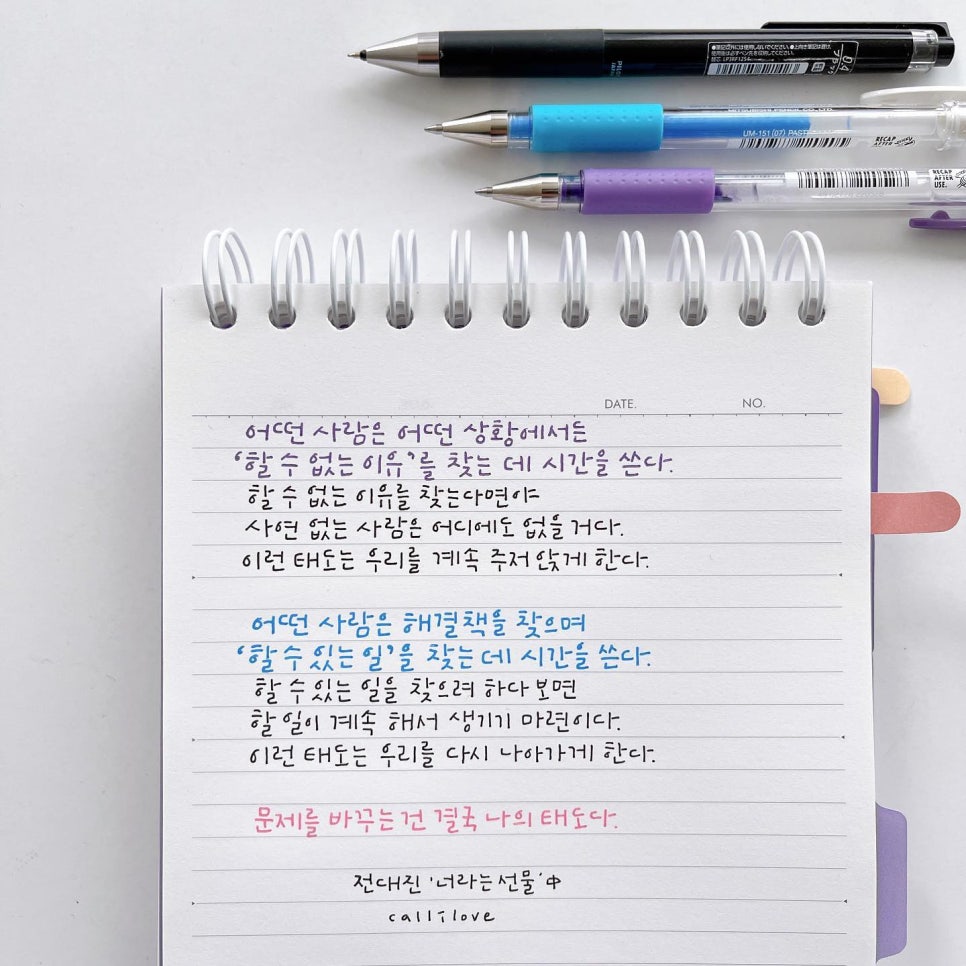 PILOT
0.4
UM-151(07) PAST
RECAP
AFTER
RECAP
AFTER
USE.
DATE. NO.
어떤 사람은 어떤 상황에서든
'할 수 없는 이유'를 찾는 데 시간을 쓴다.
할 수 없는 이유를 찾는다면야
사연 없는 사람은 어디에도 없을 거다.
이런 태도는 우리를 계속 주저 앉게 한다.
어떤 사람은 해결책을 찾으며
'할 수 있는 일'을 찾는 데 시간을 쓴다.
할 수 있는 일을 찾으려 하다 보면
할 일이 계속 해서 생기기 마련이다.
이런 태도는 우리를 다시 나아가게 한다.
문제를 바꾸는 건 결국 나의 태도다.
전대진 '너라는 선물' 中
calli.love